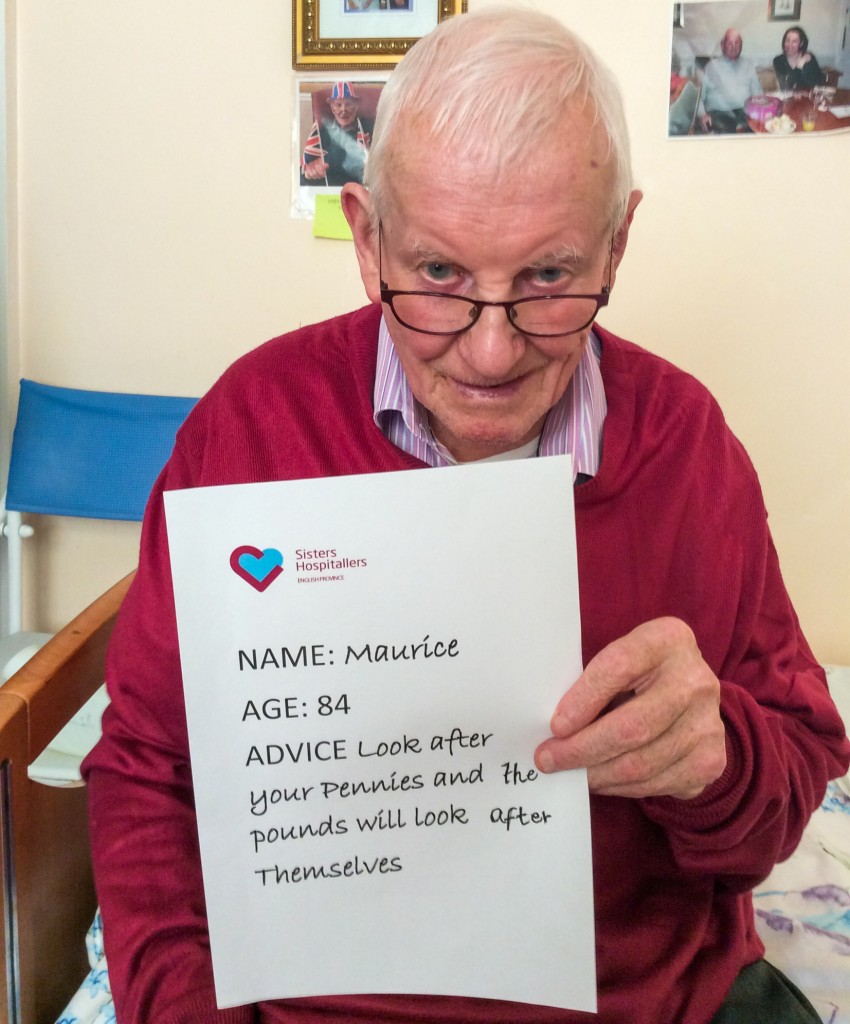 Sisters
Hospitallers
ENGLISH PROVINCE
NAME: Maurice
AGE: 84
ADVICE Look after
your Pennies and the
pounds will look after
Themselves